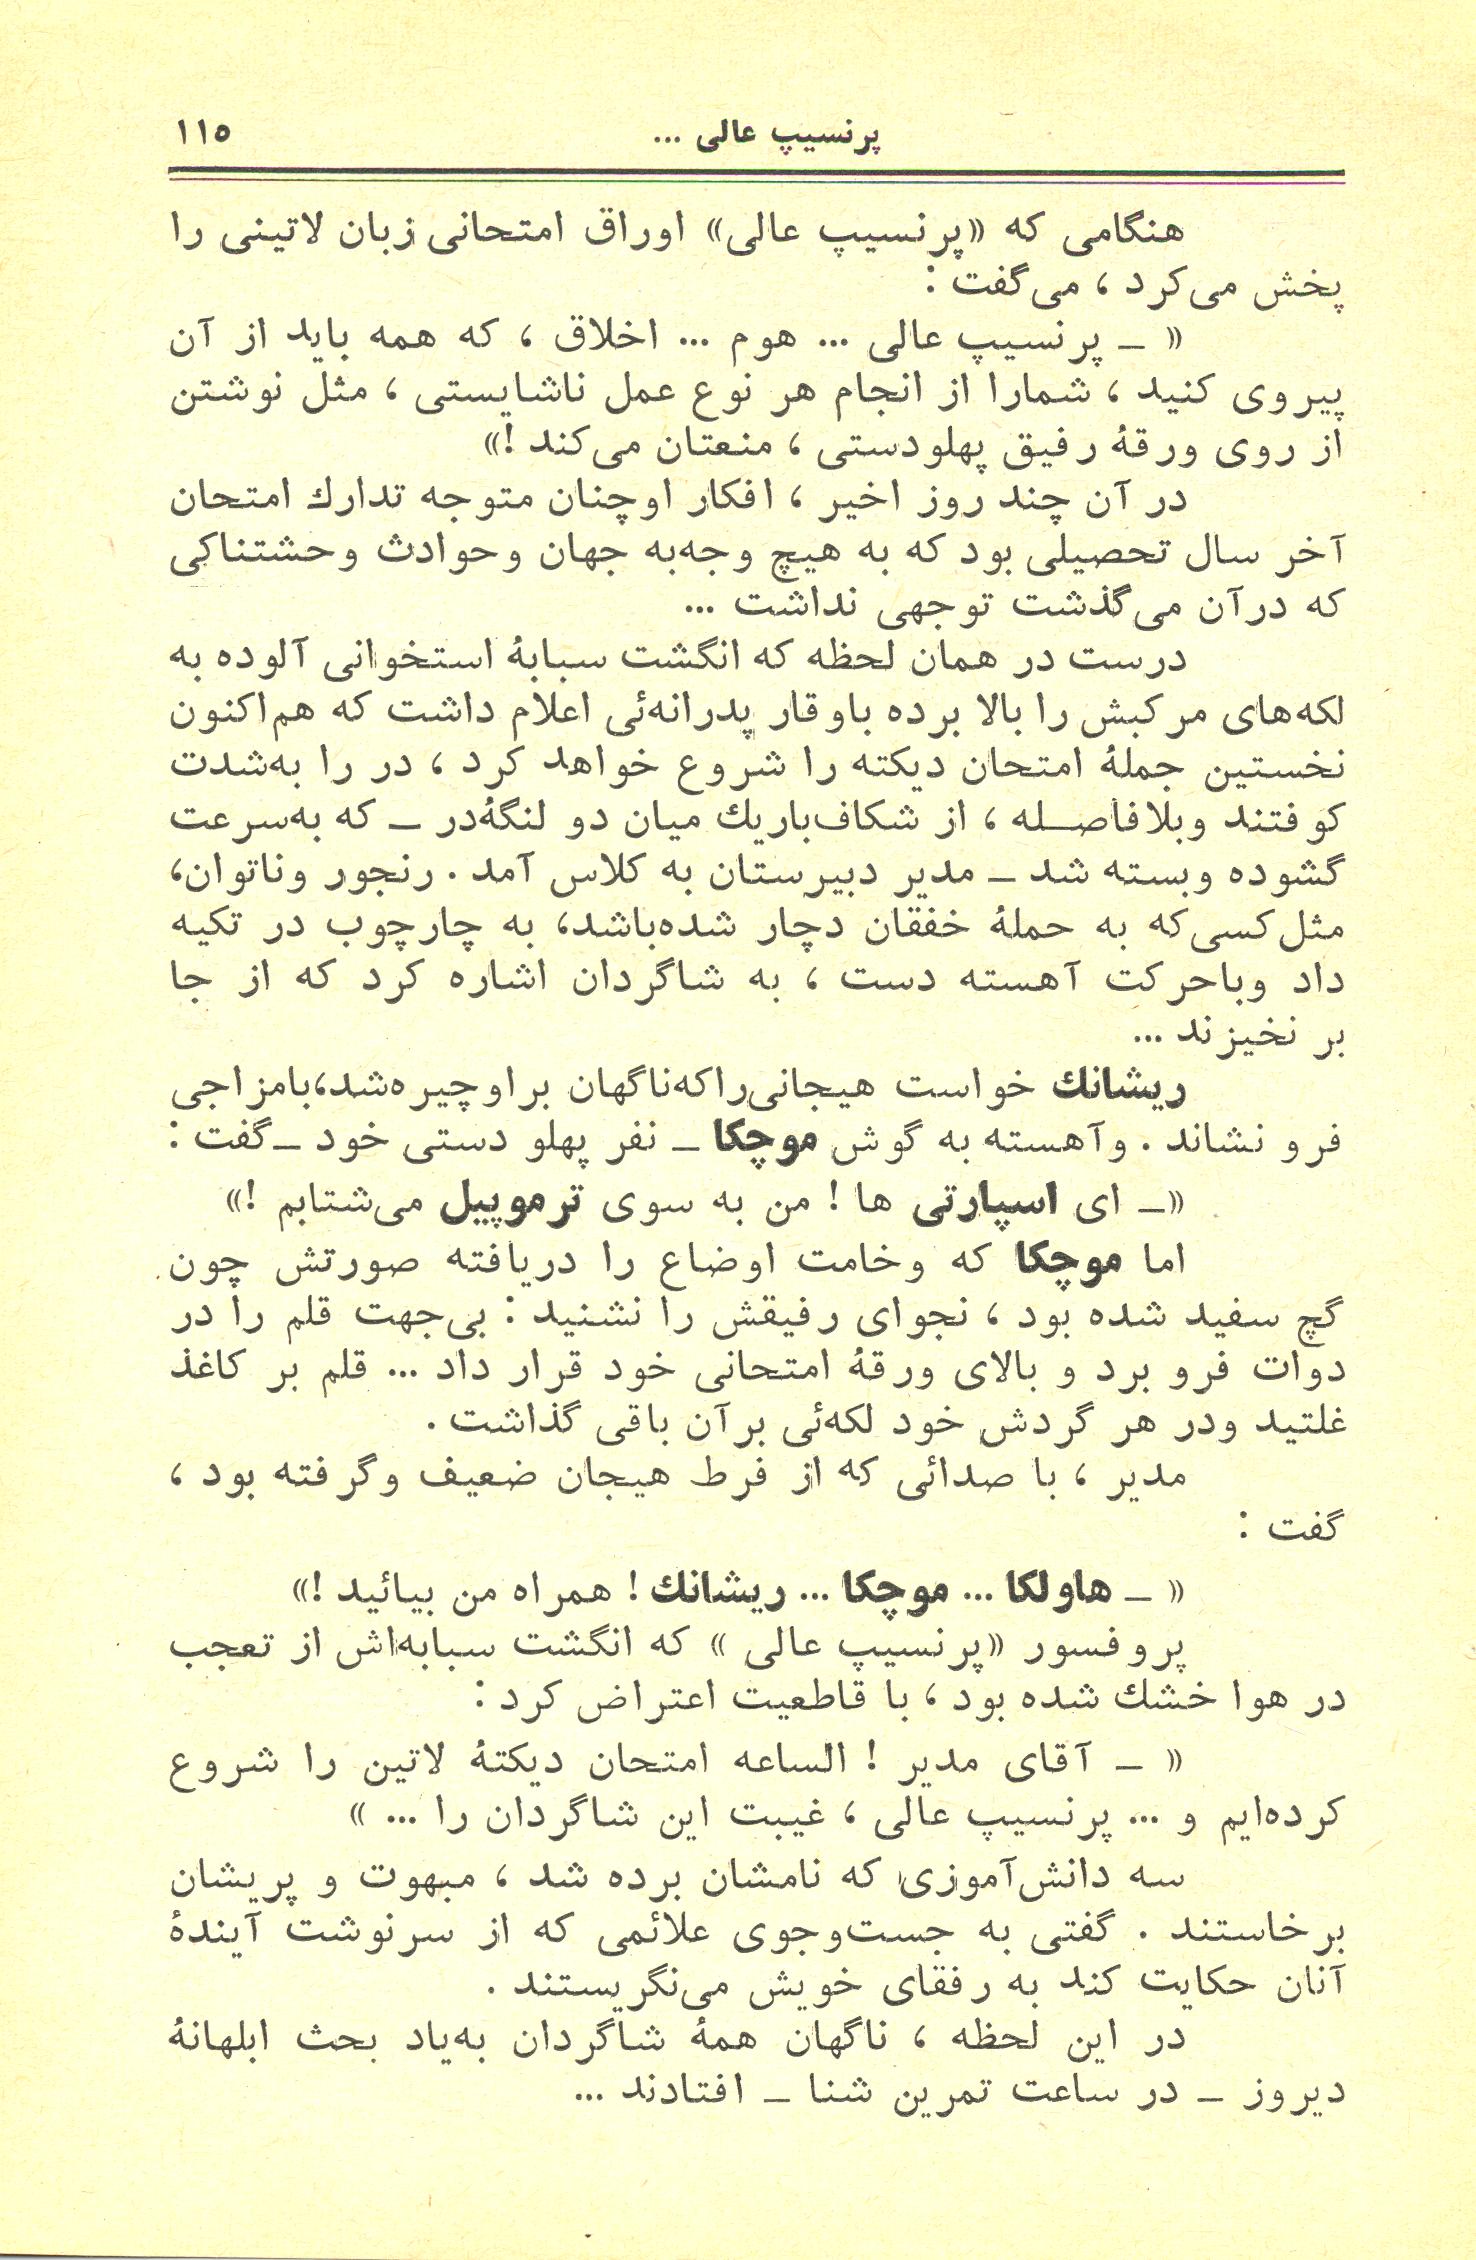 پرنسیپ عالی ...
۱۱۵
هنگامی که «پرنسیپ عالی» اوراق امتحانی زبان لاتینی را
پخش می‌کرد ، می‌گفت :
« ـ پرنسیپ عالی ... هوم ... اخلاق ، که همه باید از آن
پیروی کنید ، شمارا از انجام هر نوع عمل ناشایستی ، مثل نوشتن
از روی ورقهٔ رفیق پهلودستی ، منعتان می‌کند !»
در آن چند روز اخیر ، افکار اوچنان متوجه تدارك امتحان
آخر سال تحصیلی بود که به هیچ وجه‌به جهان وحوادث وحشتناکی
که درآن می‌گذشت توجهی نداشت ...
درست در همان لحظه که انگشت سبابهٔ استخوانی آلوده به
لکه‌های مرکبش را بالا برده باوقار پدرانه‌ئی اعلام داشت که هم‌اکنون
نخستین جملهٔ امتحان دیکته را شروع خواهد کرد ، در را به‌شدت
کوفتند وبلافاصله ، از شکاف‌باریك میان دو لنگهٔ‌در ـ که به‌سرعت
گشوده وبسته شد ـ مدیر دبیرستان به کلاس آمد . رنجور وناتوان،
مثل‌کسی‌که به حملهٔ خفقان دچار شده‌باشد، به چارچوب در تکیه
داد وباحرکت آهسته دست ، به شاگردان اشاره کرد که از جا
بر نخیزند ...
ریشانك خواست هیجانی‌راکه‌ناگهان براوچیره‌شد،بامزاجی
فرو نشاند . وآهسته به گوش موچکا ـ نفر پهلو دستی خود ـ گفت :
«ـ ای اسپارتی ها ! من به سوی ترموپیل می‌شتابم !»
اما موچکا که وخامت اوضاع را دریافته صورتش چون
گچ سفید شده بود ، نجوای رفیقش را نشنید : بی‌جهت قلم را در
دوات فرو برد و بالای ورقهٔ امتحانی خود قرار داد ... قلم بر کاغذ
غلتید ودر هر گردش خود لکه‌ئی برآن باقی گذاشت .
مدیر ، با صدائی که از فرط هیجان ضعیف وگرفته بود ،
گفت :
« ـ هاولکا ... موچکا ... ریشانك ! همراه من بیائید !»
پروفسور «پرنسیپ عالی » که انگشت سبابه‌اش از تعجب
در هوا خشك شده بود ، با قاطعیت اعتراض کرد :
« ـ آقای مدیر ! الساعه امتحان دیکتهٔ لاتین را شروع
کرده‌ایم و ... پرنسیپ عالی ، غیبت این شاگردان را ... »
سه دانش‌آموزی که نامشان برده شد ، مبهوت و پریشان
برخاستند . گفتی به جست‌وجوی علائمی که از سرنوشت آیندهٔ
آنان حکایت کند به رفقای خویش می‌نگریستند .
در این لحظه ، ناگهان همهٔ شاگردان به‌یاد بحث ابلهانهٔ
دیروز ـ در ساعت تمرین شنا ـ افتادند ...